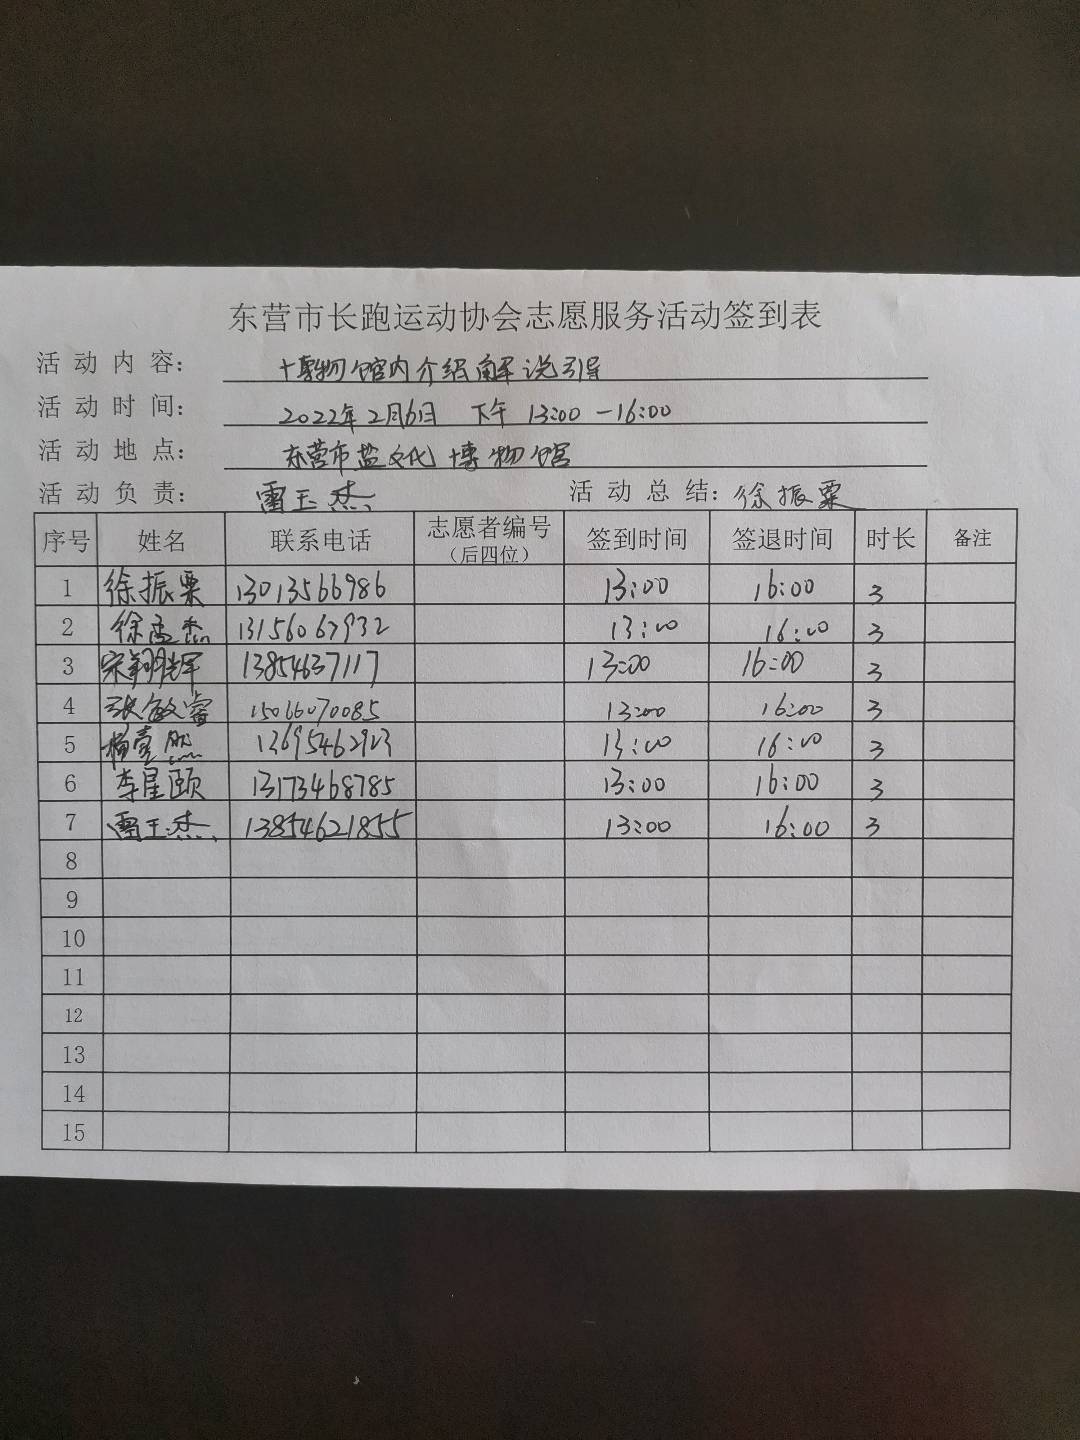 东营市长跑运动协会志愿服务活动签到表
活动内容： 博物馆内介绍解说引导
活动时间： 2022年2月6日 下午 13:00-16:00
活动地点： 东营市盐文化博物馆
活动负责： 雷玉杰 活动总结： 徐振粟
序号 姓名 联系电话 志愿者编号（后四位） 签到时间 签退时间 时长 备注
1 徐振粟 13013566986 13:00 16:00 3
2 徐孟杰 13156067932 13:00 16:00 3
3 宋翔辉 13854637117 13:00 16:00 3
4 张敏睿 15066070085 13:00 16:00 3
5 杨壹然 13695462923 13:00 16:00 3
6 李星颐 13173468785 13:00 16:00 3
7 雷玉杰 13854621855 13:00 16:00 3
8
9
10
11
12
13
14
15